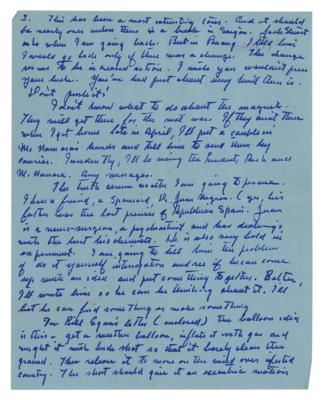 3. This has been a most interesting tour. And it should
be nearly over unless there is a break in Saigon. Jack Stuart
asks when I am going back. But in Penang I told him
I would go back only if there was a change. The change
seems to be in second action. I wish you wouldn't press
your luck. You've had just about every limit there is.
Don't push it!
I don't know what to do about the magnets.
They will get there for the next war. If they aren't there
when I get home late in April, I'll put a cauliflower
Mr. McNamara's hands and tell him to send them by
courier. Incidently, I'll be seeing the President, Rusk and
McNamara. Any messages.
The truth serum matter I am going to pursue.
I have a friend, a Spaniard, Dr. Juan Negrin (yes, his
father was the last premier of Republican Spain. Juan
is a neuro-surgeon, a psychiatrist and has dealings
with the best biochemists. He is also very bold in
experiment. I am going to tell him the problem
of do it yourself interrogation and see if he can come
up with an idea and put something together. Better,
I'll write him so he can be thinking about it. I'll
bet he can find something or make something
For Bill Egan's letter (enclosed) the balloon idea
is this - get a weather balloon, inflate it with gas and
weight it with bird shot so that it barely clears the
ground. Then release it to move on the wind over infested
country. The shot should give it an eccentric motion